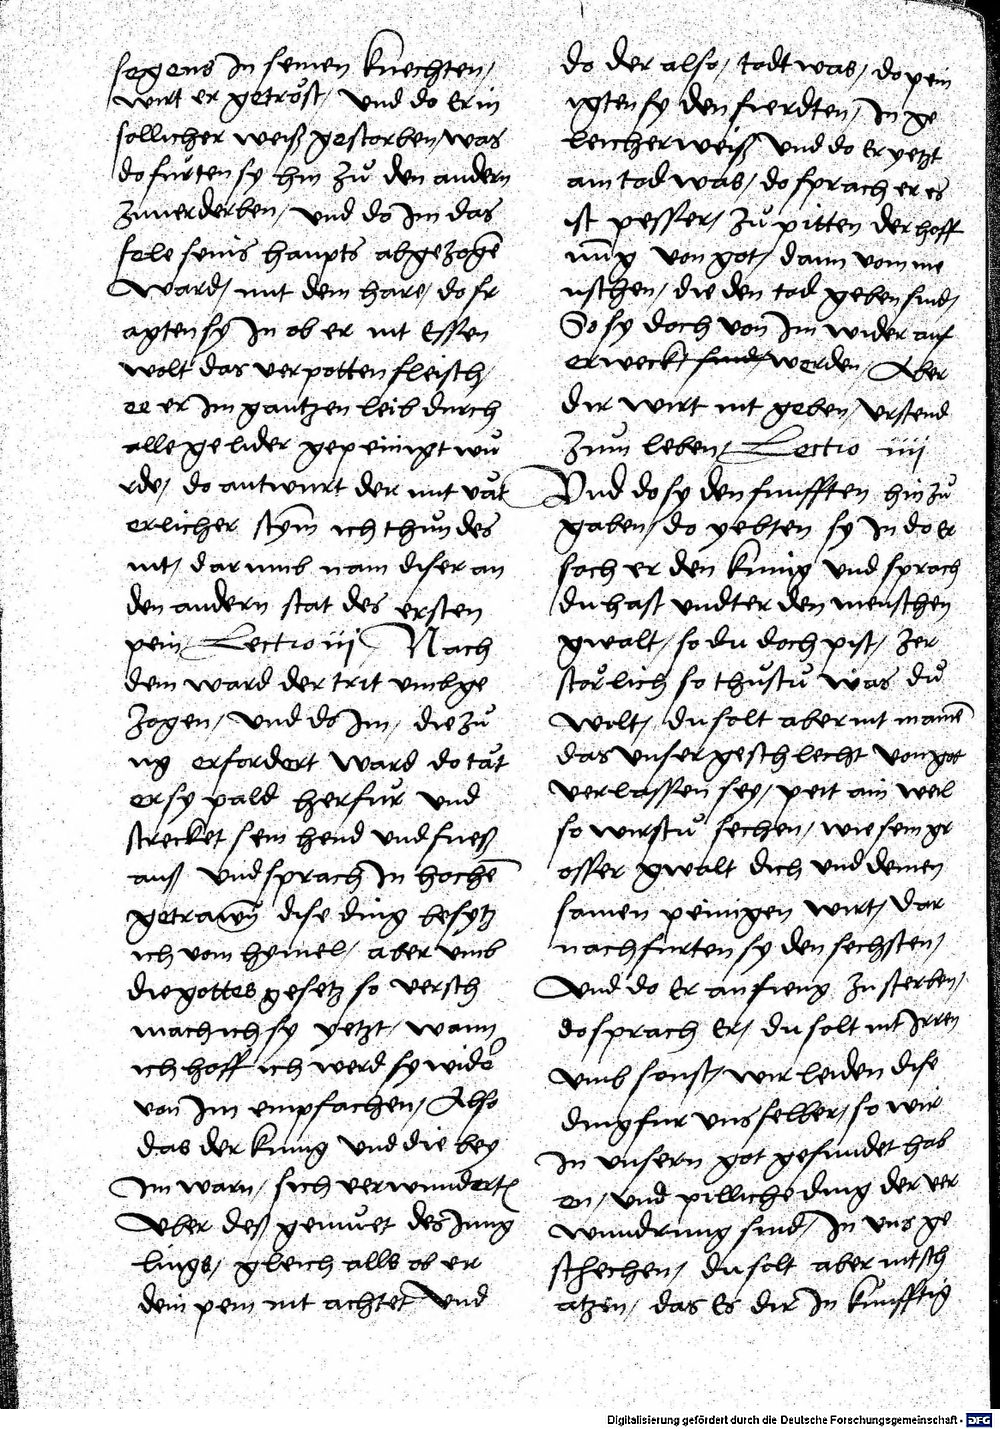 segens in seinen knechten/
wirt er getröst/ vnd do Er in
sollicher weiß gestorben/ was
do fürten sy hin zů den andern
zuuerderben/ vnd do im das
fele seins haupts abgezogē
Ward/ mit dem hare/ do fr
agten sy In ob er nit Essen
wolt das verpotten fleisch/
ee er im gantzen leib durch
alle gelider gepeinigt wu
rde/ do antwurt der mit vät
erlicher stym̄ ich thůn des
nit/ dar umb nam diser an
den andern stat des ersten
pein/ Lectio iij Nach
dem ward der trit vmbge
zogen/ vnd do Im/ die zu
ng erfordert ward do tät
er sy pald herfur vnd
strecket sein hend vnd fues
auß vnd sprach In hochē
getrawn̄ dise ding besytz
ich vom hymel/ aber vmb
die gottes gesetz so versch
mach ich sy yetzt/ wann
ich hoff ich werd sy wider
von Im empfachen/ Also
das der kunig vnd die bey
Im warn/ sich verwundertē
Vber deß gemuet des Jung
lings/ gleich alls ob er
dein pein nit achtet Vnd
do der also/ todt was/ do pein
igten sy den fierdten/ In ge
leicher weiß vnd do Er yetzt
am tod was/ do sprach er es
ist pesser/ zů pitten der hoff
nūg von got/ dann vom me
nschen/ die den tod geben sind/
So sy doch von Im wider auf
erweckt sind werden/ Aber
dir wirt nit geben/ vrstend
zum leben/ Lectio iiij
Vnd do sy den funfften hin zů
gaben/ do yebten sy In do Er
sach er den kunig vnd sprach
du hast vndter den menschen
gwalt/ so du doch pist/ zer
störlich so thůstu was du
wolt/ du solt aber nit mainē
das vnser geschlecht von got
verlassen sey/ peit ain weil
so wirstu sechen/ wie sein gr
osser gwalt dich vnd deinen
samen peinigen wirt/ dar
nach furten sy den sechsten/
Vnd do Er anfieng zu sterben/
do sprach Er/ du solt nit Irren
vmb sonst/ wir leiden dise
ding fur vns selber/ so wir
In vnsern got gesundet hab
en/ vnd pilliche ding der ver
wundrung sind/ In vns ge
schechen/ du solt aber nit sch
atzen/ das Es dir In kunfftig
Digitalisierung gefördert durch die Deutsche Forschungsgemeinschaft - DFG